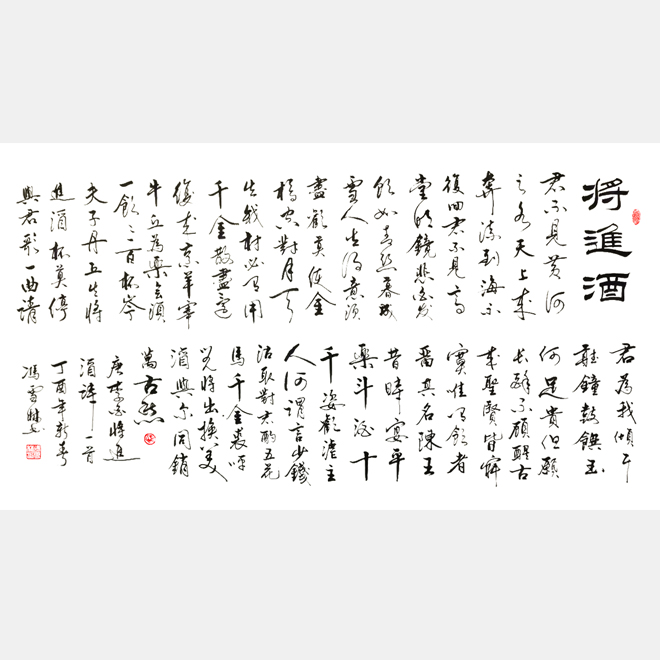 将進酒
君不見黄河
之水天上来
奔流到海不
復回君不見高
堂明鏡悲白发
朝如青丝暮成
雪人生得意须
盡歡莫使金
樽空對月天
生我材必有用
千金散盡還
復来烹羊宰
牛且為樂會須
一飲三百杯岑
夫子丹丘生将
進酒杯莫停
與君歌一曲請
君為我傾耳
聽鐘鼓饌玉
何足貴但願
长醉不願醒古
来聖賢皆寂
寞唯有飲者
留其名陳王
昔時宴平
樂斗酒十
千恣歡謔主
人何謂言少錢
沽取對君酌五花
馬千金裘呼
兒将出换美
酒與尔同銷
萬古愁
唐李白将進
酒詩一首
丁酉年新春
馮雪